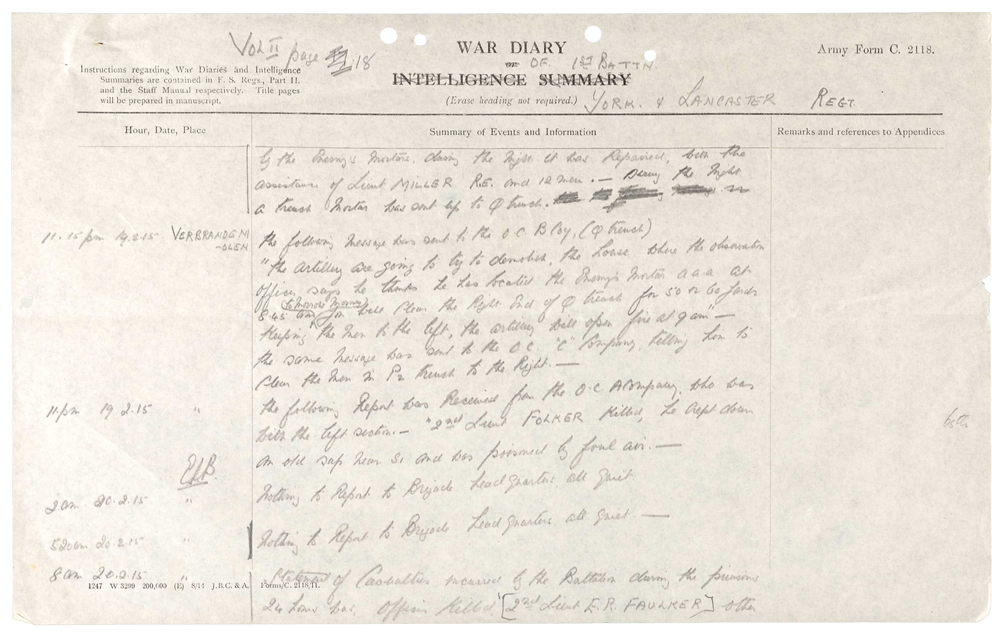 VOL II page 18
WAR DIARY
Army Form C. 2118.
or OF 1ST BATTN.
Instructions regarding War Diaries and Intelligence
Summaries are contained in F. S. Regs., Part II.
and the Staff Manual respectively. Title pages
will be prepared in manuscript.
INTELLIGENCE SUMMARY
(Erase heading not required.) YORK. & LANCASTER REGT.
Hour, Date, Place
Summary of Events and Information
Remarks and references to Appendices
by the Enemy's Mortars. during the Night it was Repaired, with the
assistance of Lieut MILLER R.E. and 12 men. — During the Night
a trench Mortar was sent up to Q trench.
11.15 pm 19.2.15 VERBRANDEN M
-OLEN
the following Message was sent to the O.C. B Coy, (Q trench)
"the artillery are going to try to demolish, the house where the observation
Officer says he thinks he has located the Enemy's Mortar a a a at
8.45 am tomorrow Morning you will clear the Right End of Q trench for 50 or 60 yards
Keeping the Men to the left, the artillery will open fire at 9 am" —
the same Message was sent to the O.C. "C" Company, telling him to
clear the Men in P2 trench to the Right. —
11 pm 19 2.15 "
the following Report was Received from the O.C A Company, who was
with the left section. — "2nd Lieut FOLKER Killed, he crept down
an old sap near 30 and was poisoned by foul air. —
EJB.
2 am 20.2.15 "
Nothing to Report to Brigade Head Quarters all quiet
5 20 am 20.2.15 "
Nothing to Report to Brigade Head Quarters. all quiet. —
8 am 20.2.15 "
Statement of Casualties incurred by the Battalion during the previous
1247 W 3299 200,000 (E) 8/14 J.B.C. & A. Forms/C. 2118/11.
24 hours was, Officers Killed [2nd Lieut E.R. FAULKER] other